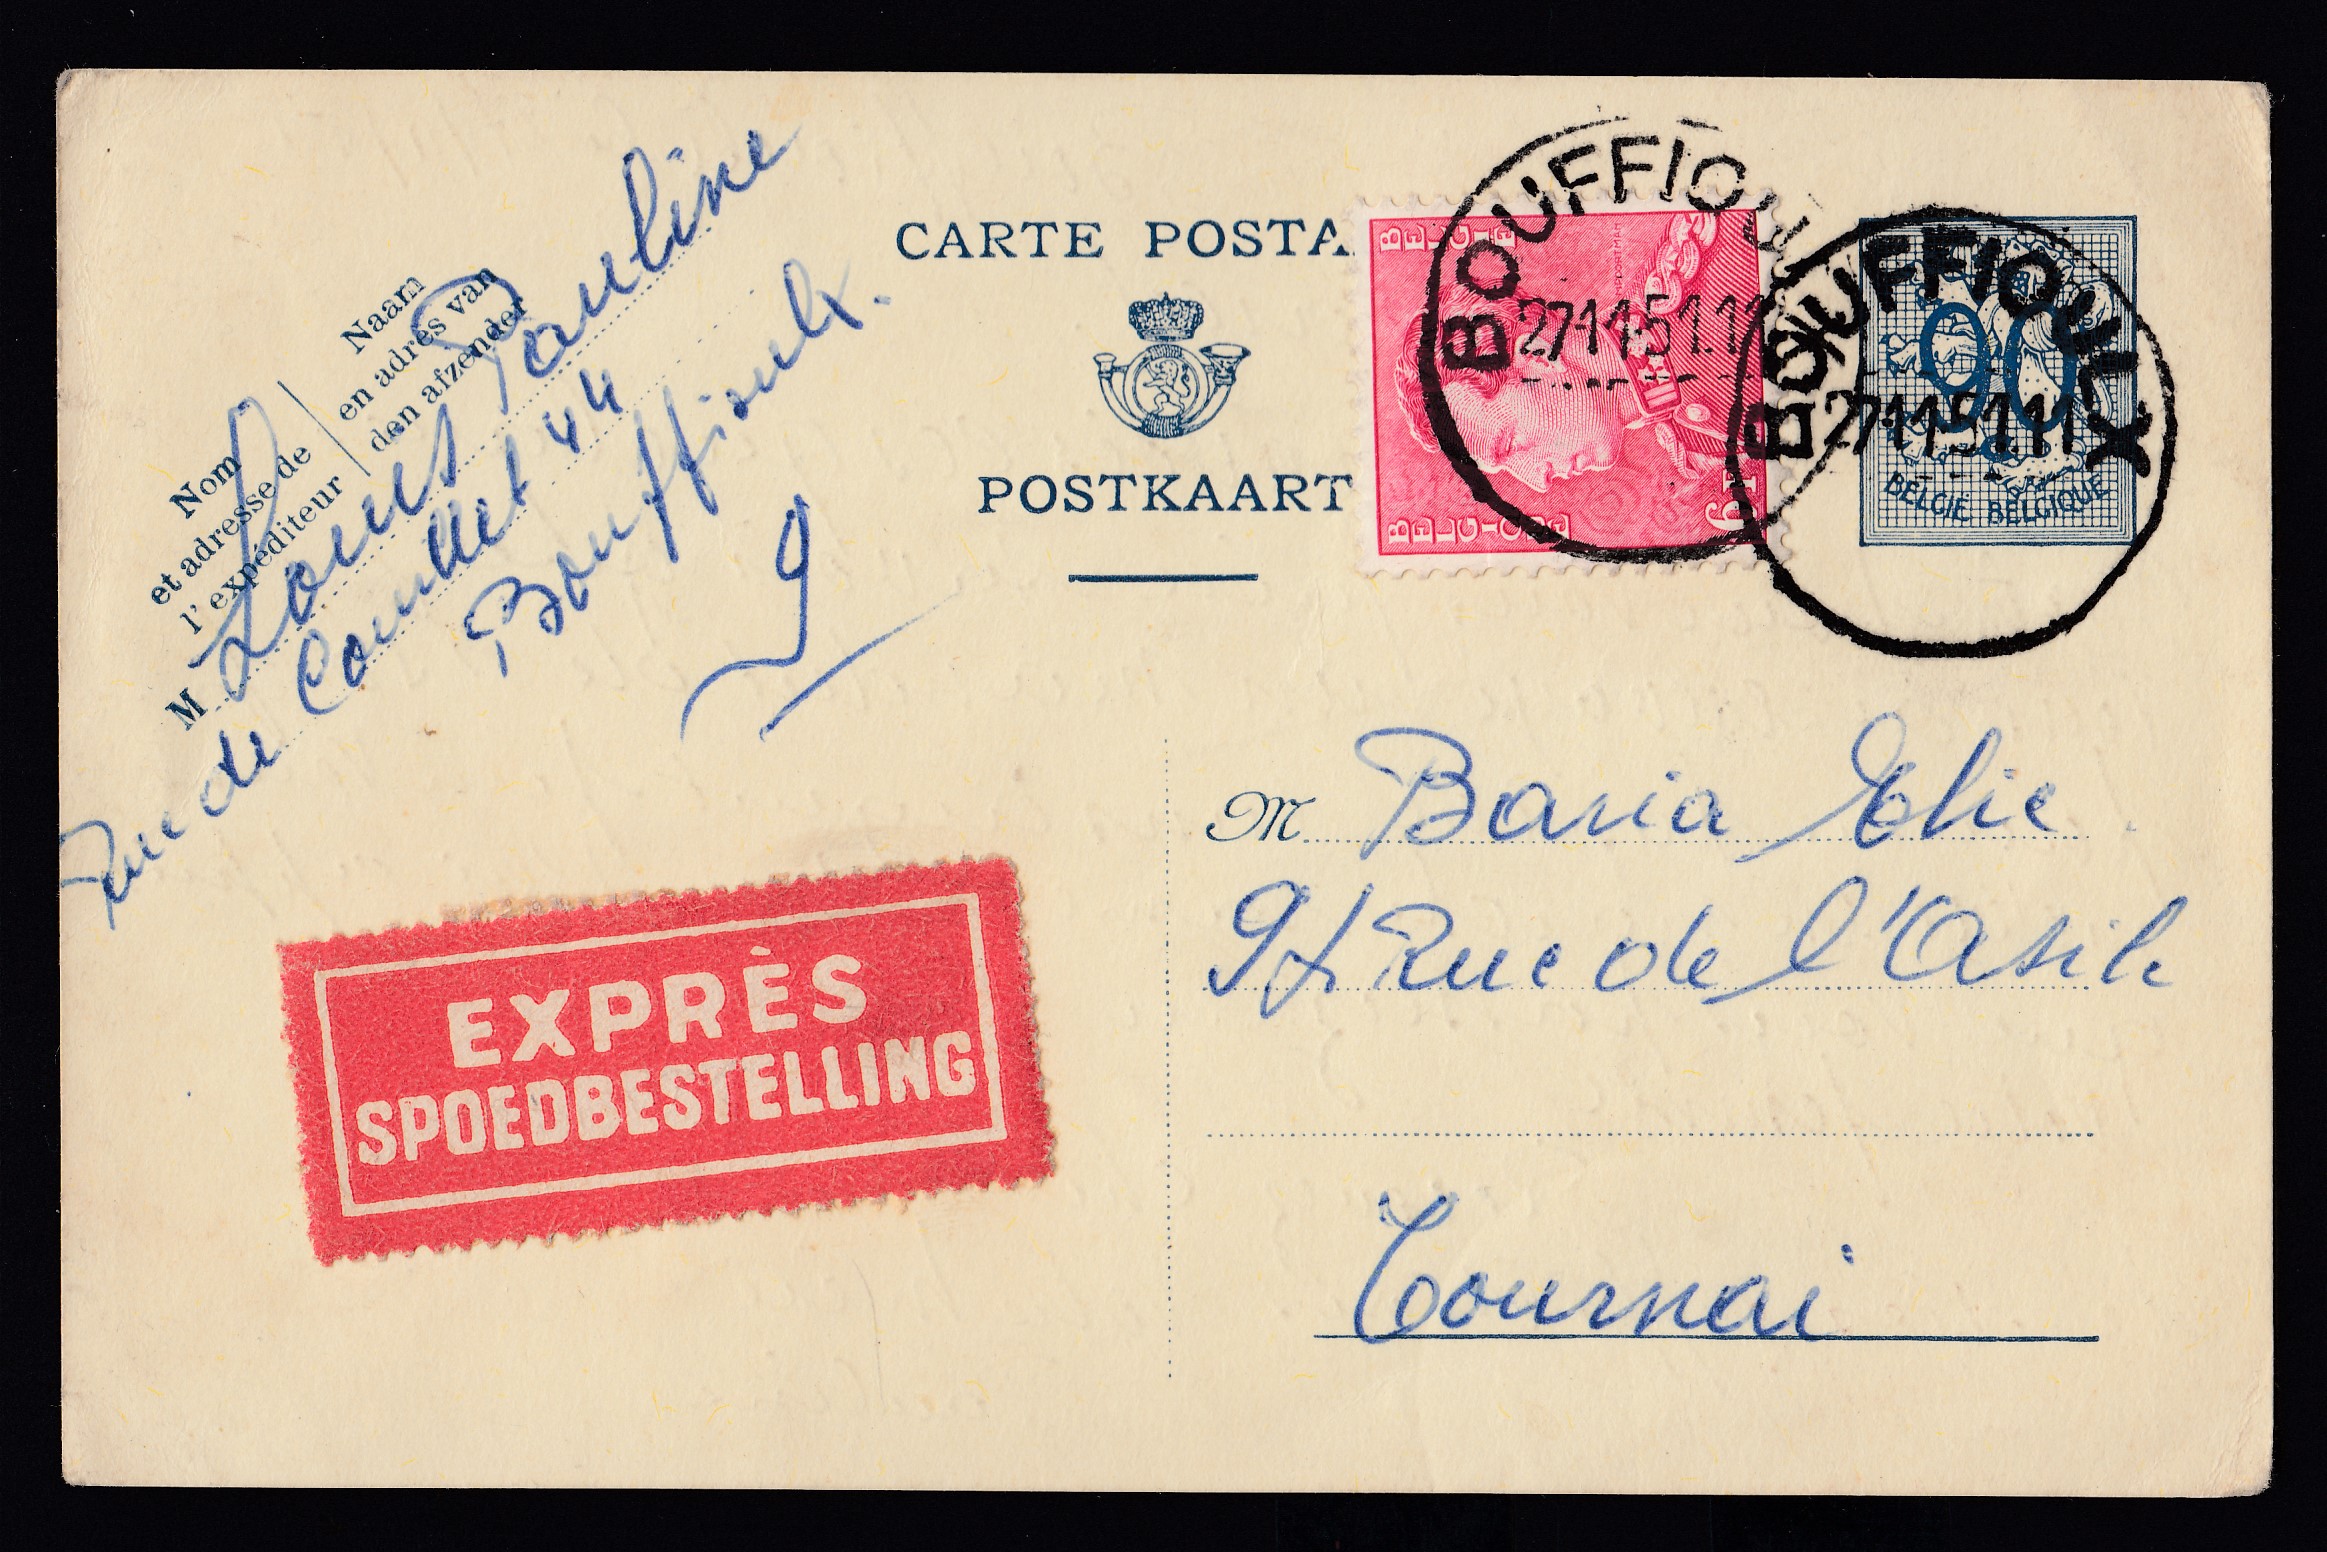 Nom
et adresse de
l'expéditeur
Naam
en adres van
den afzender
M Louis Pauline
Rue de Couillet 44
Bouffioulx.
9
CARTE POSTA
POSTKAART
BELGIE
BELGIQUE
6F
BOUFFIOULX
27 11 51 11
90
BELGIË BELGIQUE
BOUFFIOULX
27 11 51 11
M Baria Elie
Rue de l'Asile
Tournai
EXPRÈS
SPOEDBESTELLING